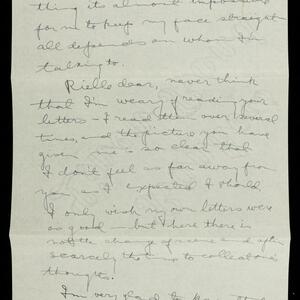 thing its almost impossible
for me to keep my face straight
all depends on whom I'm
talking to.
Rielle dear, never think
that I'm weary of reading your
letters - I read them over several
times, and the picture you have
given me is so clear that
I don't feel as far away from
you as I expected I should.
I only wish my own letters were
as good - but here there is
not the change of scene and after
scarcely thoughts.
I'm very glad to